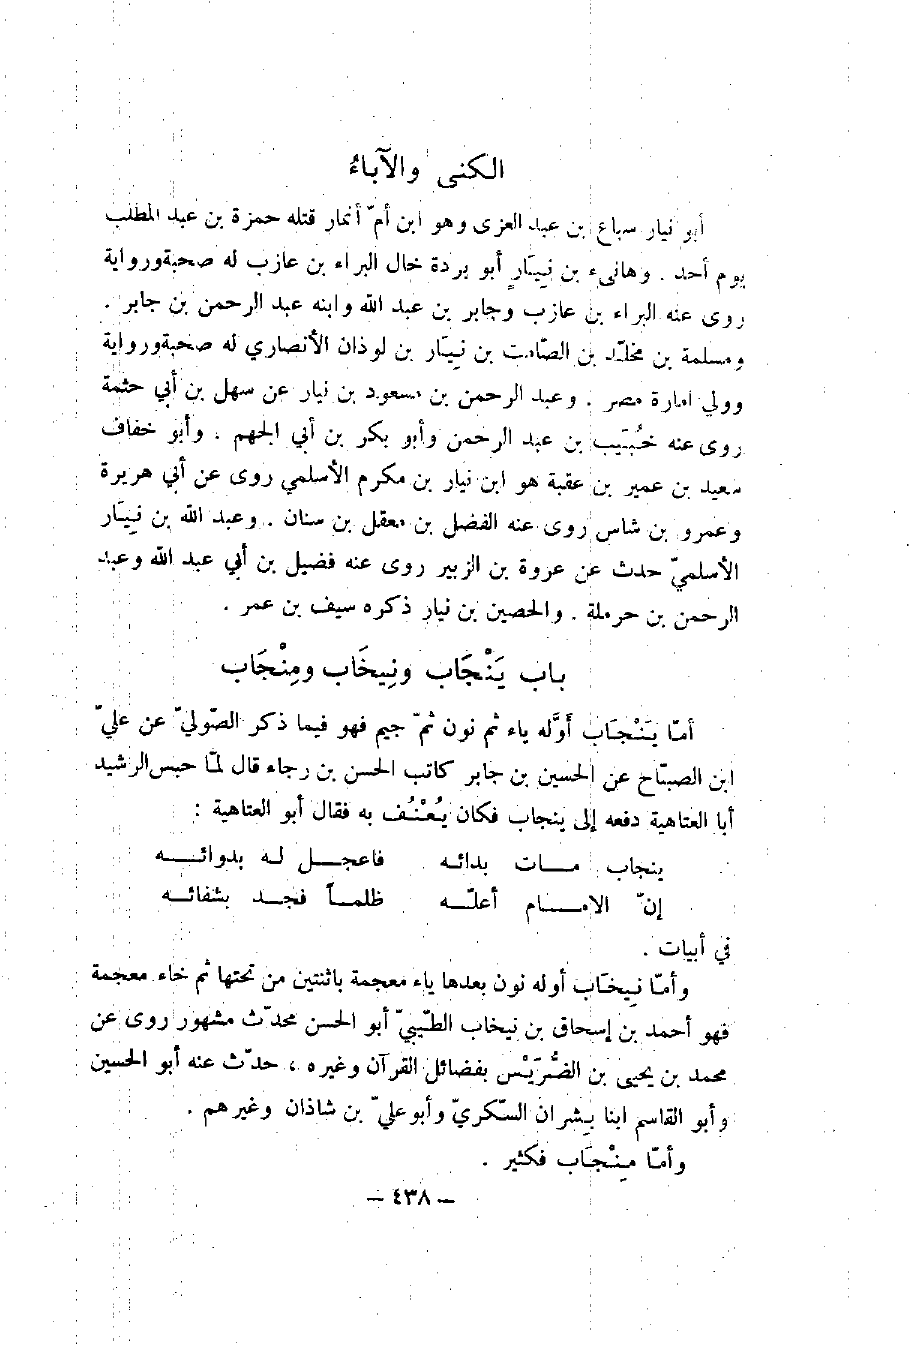 الكنى والآباء
أبو نيار سباع بن عبد العزى وهو ابن أمّ أنمار قتله حمزة بن عبد المطلب
يوم أحد . وهانىء بن نِيَارٍ أبو بردة خال البراء بن عازب له صحبةورواية
روى عنه البراء بن عازب وجابر بن عبد الله وابنه عبد الرحمن بن جابر .
ومسلمة بن مخلّد بن الصّامت بن نِيَار بن لوذان الأنصاري له صحبةورواية
وولي امارة مصر . وعبد الرحمن بن مسعود بن نيار عن سهل بن أبي حثمة
روى عنه خُبَيْب بن عبد الرحمن وأبو بكر بن أبي الجهم . وأبو خفاف
سعيد بن عمير بن عقبة هو ابن نيار بن مكرم الأسلمي روى عن أبي هريرة
وعمرو بن شاس روى عنه الفضل بن معقل بن سنان . وعبد الله بن نِيَار
الأسلميّ حدث عن عروة بن الزبير روى عنه فضيل بن أبي عبد الله وعبد
الرحمن بن حرملة . والحصين بن نيار ذكره سيف بن عمر .
باب يَنْجَاب ونِيخَاب ومِنْجَاب
أمّا يَنْجَاب أوَّله ياء ثم نون ثمّ جيم فهو فيما ذكر الصّوليّ عن عليّ
ابن الصبّاح عن الحسين بن جابر كاتب الحسن بن رجاء قال لمّا حبس الرشيد
أبا العتاهية دفعه إلى ينجاب فكان يُعْنُف به فقال أبو العتاهية :
ينجاب مات بدائه فاعجل له بدوائه
إنّ الامام أعلّه ظلماً فجد بشفائه
في أبيات .
وأمّا نِيخَاب أوله نون بعدها ياء معجمة باثنتين من تحتها ثم خاء معجمة
فهو أحمد بن إسحاق بن نيخاب الطّيبيّ أبو الحسن محدّث مشهور روى عن
محمد بن يحيى بن الضُّرَيْس بفضائل القرآن وغيره ، حدّث عنه أبو الحسين
وأبو القاسم ابنا بِشران السّكريّ وأبو عليّ بن شاذان وغيرهم .
وأمّا مِنْجَاب فكثير .
— ٤٣٨ —